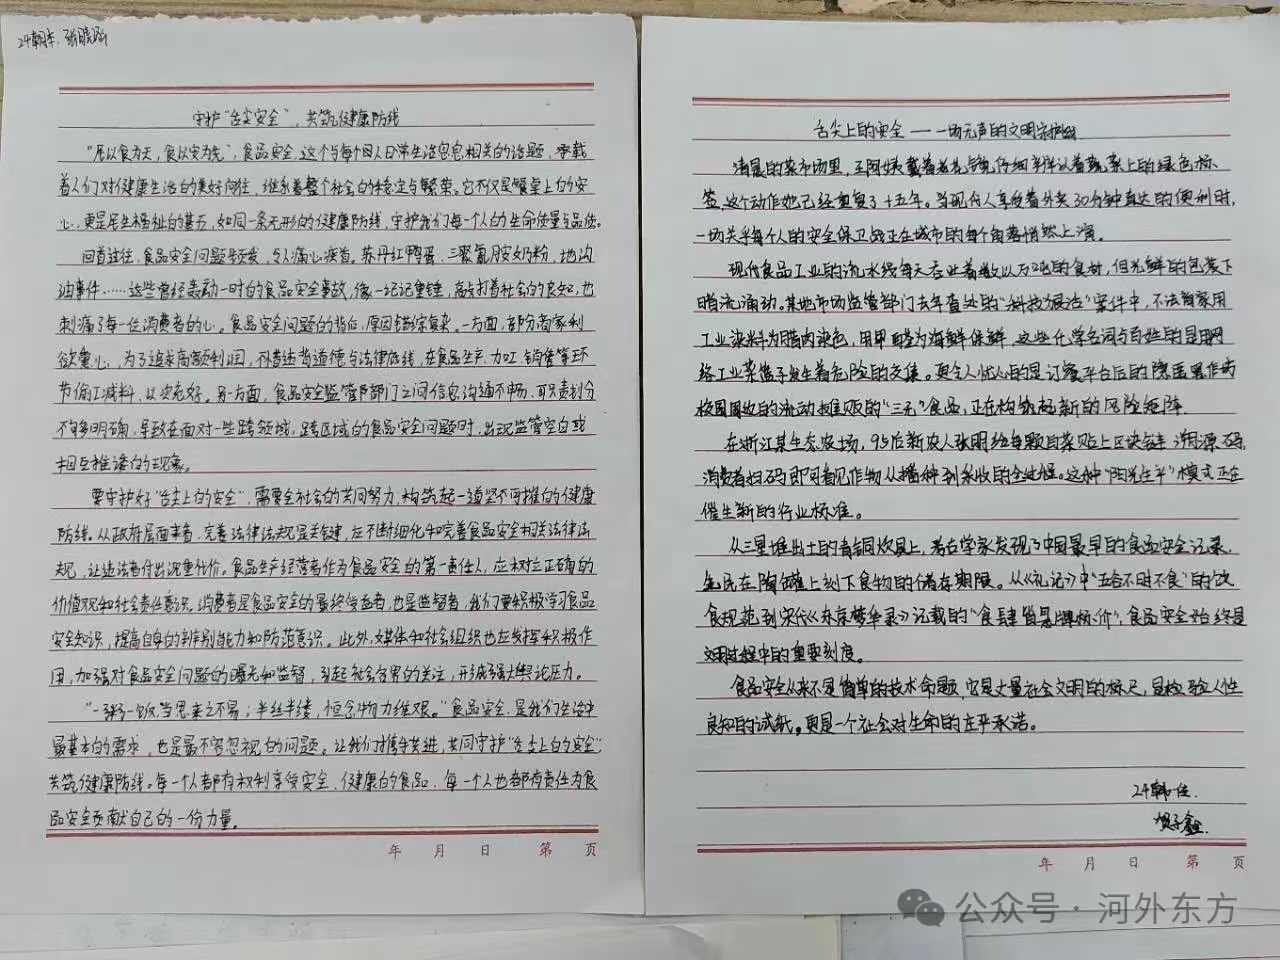 24朝本.张晓
守护"舌尖安全",共筑健康防线
"民以食为天,食以安为先",食品安全,这个与每个人日常生活息息相关的话题,承载
着人们对健康生活的美好向往,维系着整个社会的稳定与繁荣。它不仅是餐桌上的安
心,更是民生福祉的基石,如同一条无形的健康防线,守护我们每一个人的生命质量与品德。
回首过往,食品安全问题频发,令人痛心疾首。苏丹红鸭蛋、三聚氰胺奶粉、地沟
油事件……这些曾经轰动一时的食品安全事故,像一记记重锤,敲打着社会的良知,也
刺痛了每一位消费者的心。食品安全问题的背后,原因错综复杂。一方面,部分商家利
欲熏心,为了追求高额利润,不惜违背道德与法律底线,在食品生产、加工、销售等环
节偷工减料,以次充好。另一方面,食品安全监管部门之间信息沟通不畅,职责划分
不够明确,导致在面对一些跨领域、跨区域的食品安全问题时,出现监管空白或
相互推诿的现象。
要守护好"舌尖上的安全",需要全社会的共同努力,构筑起一道坚不可摧的健康
防线。从政府层面来看,完善法律法规是关键,应不断细化和完善食品安全相关法律法
规,让违法者付出沉重代价。食品生产经营者作为食品安全的第一责任人,应树立正确的
价值观和社会责任意识。消费者是食品安全的最终受益者,也是监督者,我们要积极学习食品
安全知识,提高自身的辨别能力和防范意识。此外,媒体和社会组织也应发挥积极作
用,加强对食品安全问题的曝光和监督,引起社会各界的关注,形成强大舆论压力。
"一粥一饭,当思来之不易;半丝半缕,恒念物力维艰。"食品安全,是我们生活中
最基本的需求,也是最不容忽视的问题。让我们携手共进,共同守护"舌尖上的安全",
共筑健康防线。每一个人都有权利享受安全、健康的食品,每一个人也都有责任为食
品安全贡献自己的一份力量。
年 月 日 第 页
舌尖上的安全——一场无声的文明守护战
清晨的菜市场里,王阿姨戴着老花镜仔细辨认着蔬菜上的绿色标
签,这个动作她已经重复了十五年。当现代人享受着外卖30分钟直达的便利时,
一场关乎每个人的安全保卫战正在城市的每个角落悄然上演。
现代食品工业的流水线每天吞吐着数以万吨的食材,但光鲜的包装下
暗流涌动。某地市场监管部门去年查处的"科技狠活"案件中,不法商家用
工业染料为腊肉染色,用甲醛为海鲜保鲜,这些化学名词与百姓的
菜篮子发生着危险的交集。更令人忧心的是订餐平台后的隐匿黑作坊
校园周边的流动摊贩的"三无"食品,正在构筑起新的风险矩阵。
在浙江某生态农场,95后新农人张明给每颗白菜贴上区块链溯源码,
消费者扫码即可看见作物从播种到采收的全过程。这种"阳光生产"模式正在
催生新的行业标准。
从三星堆出土的青铜炊具上,考古学家发现了中国最早的食品安全记录,
先民在陶罐上刻下食物的储存期限。从《礼记》中"五谷不时不食"的饮
食规范到宋代《东京梦华录》记载的"食肆皆悬牌标价",食品安全始终是
文明进程中的重要刻度。
食品安全从来不是简单的技术命题,它是丈量社会文明的标尺,是检验人性
良知的试纸。更是一个社会对生命的庄严承诺。
24韩一佳.
贺子鑫.
年 月 日 第 页
公众号·河外东方